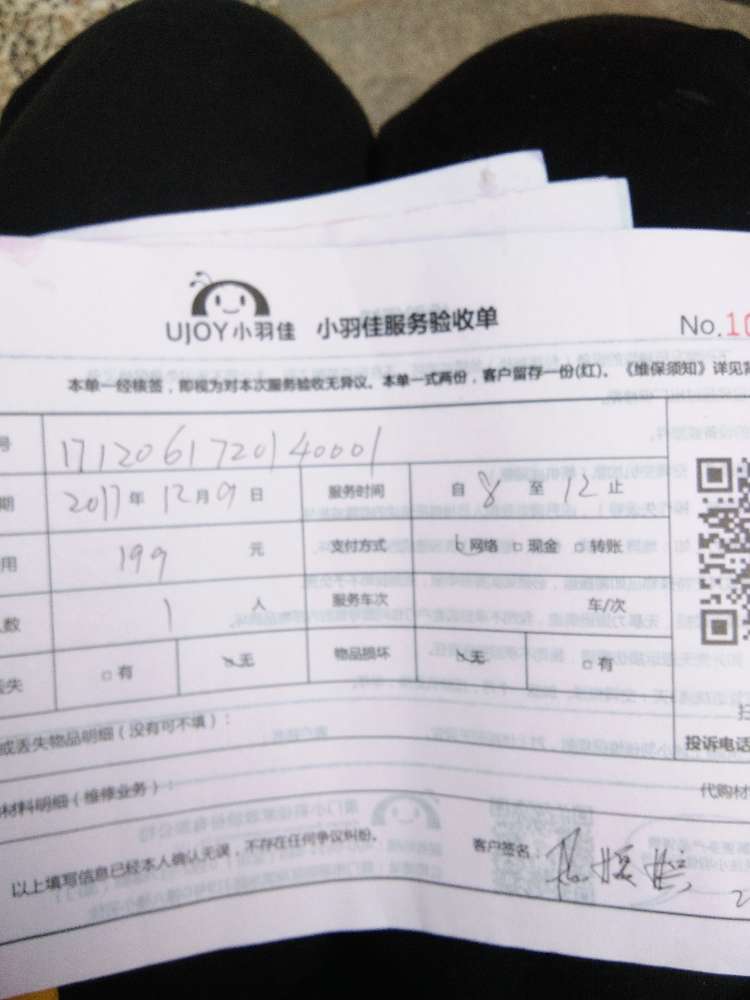 UJOY小羽佳 小羽佳服务验收单 No.10
本单一经核签，即视为对本次服务验收无异议。本单一式两份，客户留存一份(红)。《维保须知》详见背
号 1712061720140001
期 2017年12月9日 服务时间 自8至12止
用 199 元 支付方式 网络 现金 转账
人数 1 人 服务车次 车/次
丢失 有 无 物品损坏 无 有
或丢失物品明细（没有可不填）：
投诉电话
材料明细（维修业务）：
代购材
以上填写信息已经本人确认无误，不存在任何争议纠纷。 客户签名：